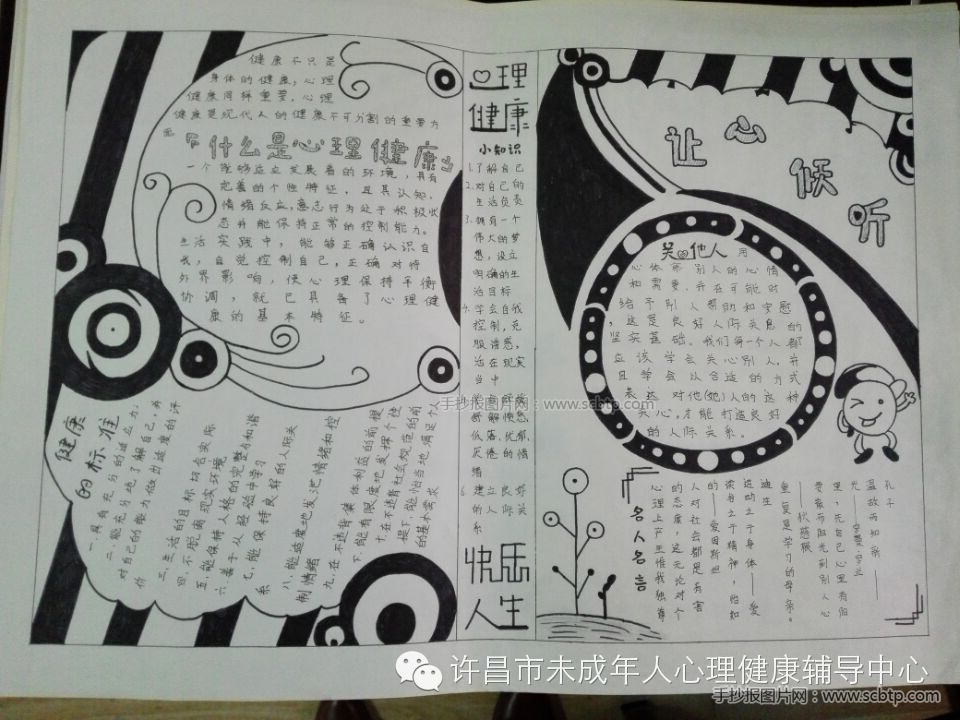 健康不只是
身体的健康，心理
健康同样重要，心理
健康是现代人的健康不可分割的重要方
面
『什么是心理健康』
一个能够适应发展着的环境，具有
完善的个性特征，且其认知，
情绪反应，意志行为处于积极状
态并能保持正常的控制能力。
生活实践中，能够正确认识自
我，自觉控制自己，正确对待
外界影响，使心理保持平衡
协调，就已具备了心理健
康的基本特征。
健康
的标准
一、具有充分的适应力，
二、能充分地了解自己，并
对自己的能力做出适度的评
价
三、生活的目标切合实际
四、不脱离现实环境
五、能保持人格的完整与和谐
六、善于从经验中学习
七、能保持良好的人际关
系
八、能适度地发泄情绪和控
制情绪
九、在不违背集体利益的前提
下，能有限度地发挥个性
十、在不违背社会规范的前
提下，能恰当地满足个人
的基本需求
心理
健康
小知识
1.了解自己
2.对自己的
生活负责
3.拥有一个
伟大的梦
想，设立
明确的生
活目标
4.学会自我
控制，克
服诱惑，
活在现实
当中
低落、忧郁、
厌倦的情
绪
6.建立良好
的人际关
系
快乐
人生
让心
倾听
关心他人 用
心体察别人的心情
和需要，并在可能时
给予别人帮助和安慰
，这是良好人际关系的
坚实基础。我们每一个人都
应该学会关心别人，并
且学会以合适的方式
表达对他(她)人的这种
关心，才能打造良好
的人际关系。
名人名言
孔子
温故而知新——
光——罗曼·罗兰
里，先自己心里有阳
要散布阳光到别人心
——狄慈根
重复是学习的母亲。
迪生
运动之于身体——爱
读书之于精神，恰如
的——爱因斯坦
人对社会都是有害
的态度，这无论对个
心理上产生惟我独尊
手抄报图片网：www.scbtp.com
许昌市未成年人心理健康辅导中心
手抄报图片网：www.scbtp.com